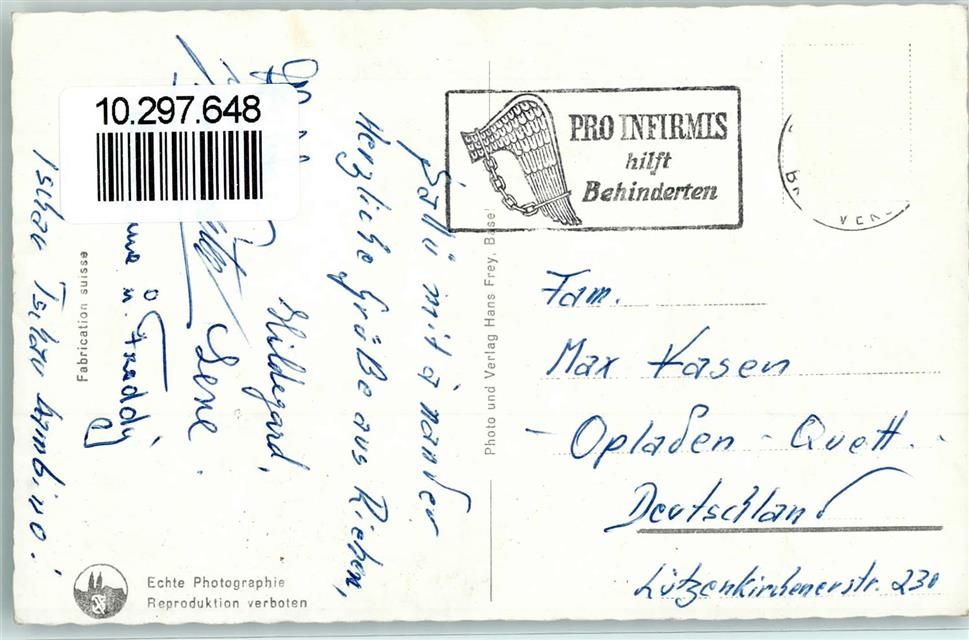 10.297.648
PRO INFIRMIS
hilft
Behinderten
Sälü mitänander
Herzliche Grüße aus Riehen,
Hildegard,
Lene.
u. Freddy
Tschau Tschau bambino!
Fabrication suisse
Photo und Verlag Hans Frey, Basel
Fam.
Max Kasen
- Opladen - Quett.
Deutschland
Lützenkirchenerstr. 230
Echte Photographie
Reproduktion verboten